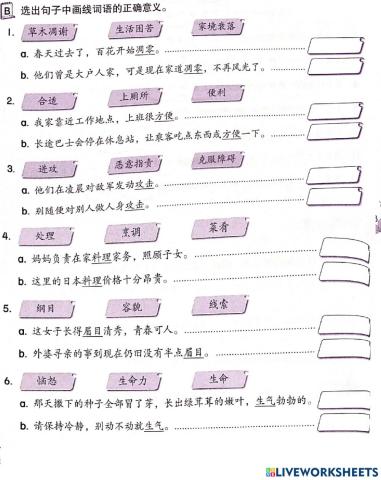 B 选出句子中画线词语的正确意义。
1. 草木凋谢 生活困苦 家境衰落
a. 春天过去了，百花开始凋零。
b. 他们曾是大户人家，可是现在家道凋零，不再风光了。
2. 合适 上厕所 便利
a. 我家靠近工作地点，上班很方便。
b. 长途巴士会停在休息站，让乘客吃点东西或方便一下。
3. 进攻 恶意指责 克服障碍
a. 他们在凌晨对敌军发动攻击。
b. 别随便对别人做人身攻击。
4. 处理 烹调 菜肴
a. 妈妈负责在家料理家务，照顾子女。
b. 这里的日本料理价格十分昂贵。
5. 纲目 容貌 线索
a. 这女子长得眉目清秀，青春可人。
b. 外婆寻亲的事到现在仍旧没有半点眉目。
6. 恼怒 生命力 生命
a. 那天撒下的种子全部冒了芽，长出绿茸茸的嫩叶，生气勃勃的。
b. 请保持冷静，别动不动就生气。
LIVEWORKSHEETS